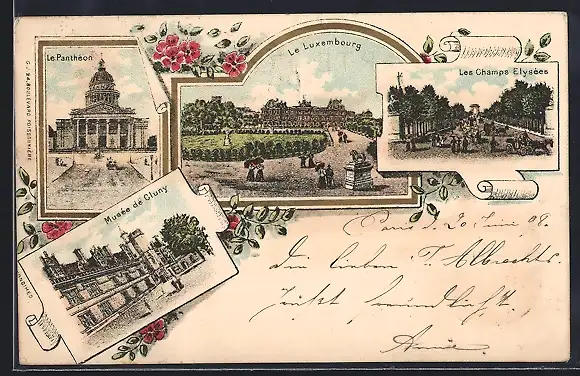 Le Panthéon
Le Luxembourg
Les Champs Elysées
Musée de Cluny
Paris d. 20 Juni 08.
Den lieben T. Albrechts
freundlichst
Annie